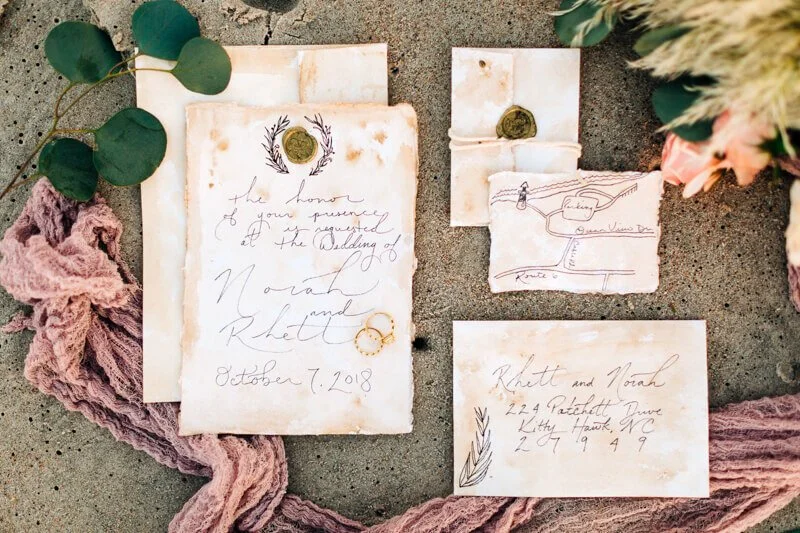 the honor
of your presence
is requested
at the Wedding of
Norah
and
Rhett
October 7, 2018
Parking
Route 6
Rhett and Norah
224 Patchett Drive
Kitty Hawk, NC
27949